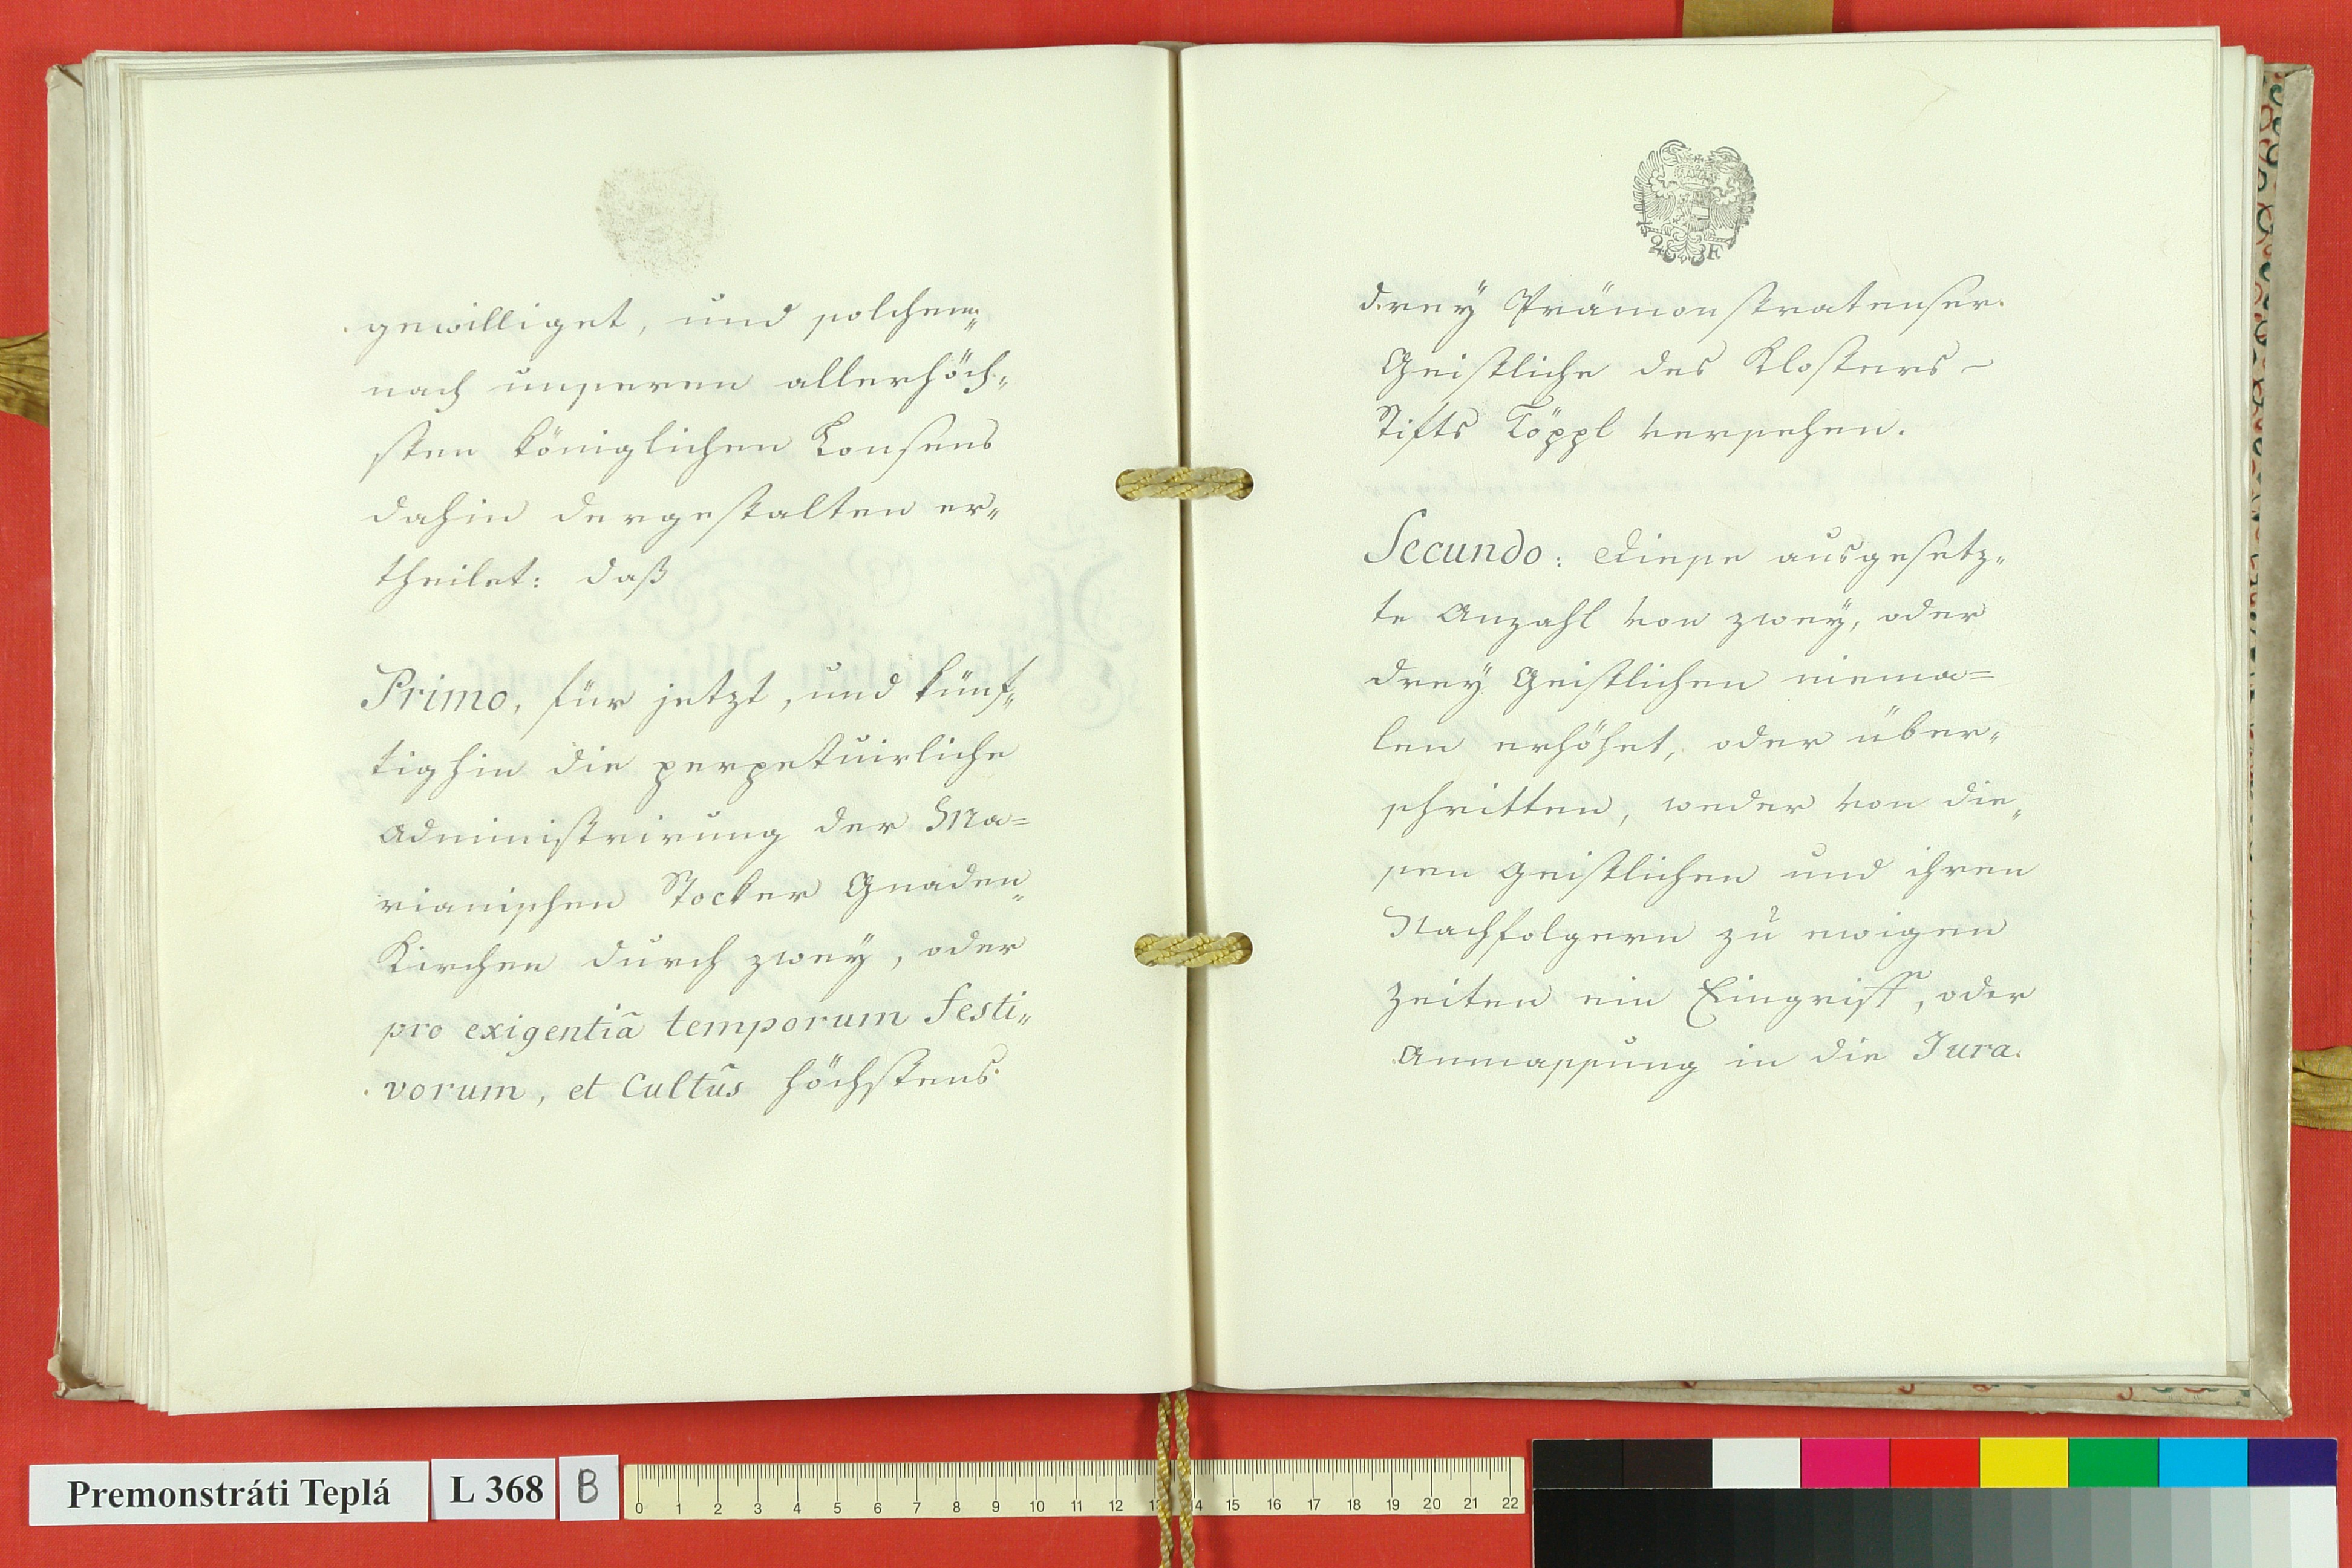 gewilliget, und solchem„
nach unseren allerhöch„
sten königlichen Konsens
dahin dergestalten er„
theilet: daß
Primo, für jetzt, und künf„
tighin die perpetuirliche
Administrirung der Ma=
rianischen Stocker Gnaden„
Kirchen durch zwey, oder
pro exigentiâ temporum festi„
vorum, et Cultûs höchstens
drey Prämonstratenser
Geistliche des Klosters-
Stifts Töppl versehen.
Secundo: diese ausgesetz„
te Anzahl von zwey, oder
drey Geistlichen niema=
len erhöhet, oder über„
schritten, weder von die„
sen Geistlichen und ihren
Nachfolgern zu ewigen
Zeiten ein Eingriff, oder
Anmassung in die Jura
2 F
Premonstráti Teplá
L 368
B
0 1 2 3 4 5 6 7 8 9 10 11 12 13 14 15 16 17 18 19 20 21 22